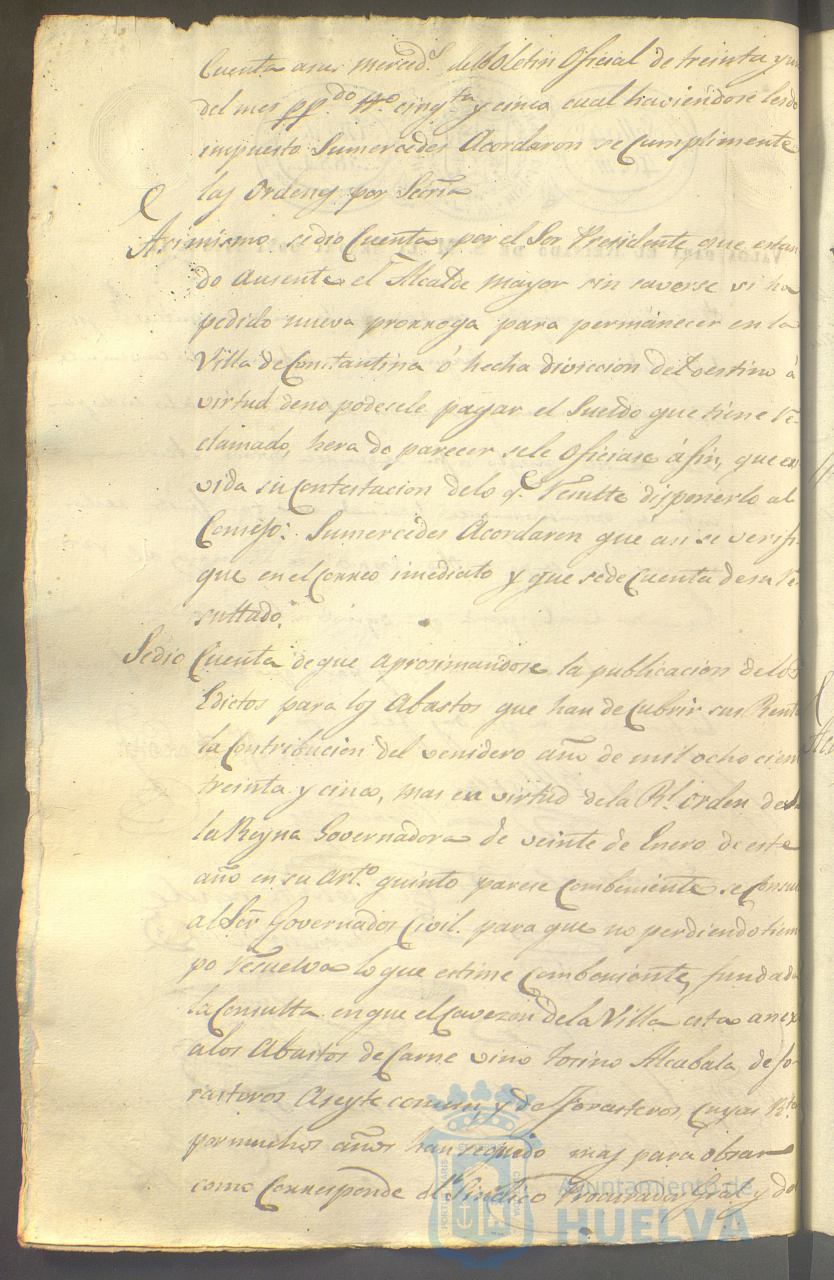 Cuenta a sus merced.s del Boletin Oficial de treinta y un
del mes pp.do N.o cinq.ta y cinco cual haviendose leido
impuesto Sumercedes Acordaron se Cumplimente
las Ordenes por Seoria
Asimismo se dio Cuenta por el Sor Presidente, que estan
do Ausente el Alcalde mayor sin saverse si ha
pedido nueva prorroga para permanecer en la
Villa de Constantina ó hecha divicion del destino á
virtud de no podesele pagar el Sueldo que tiene re-
clamado, hera de parecer se le Oficiase á fin, que en
vida su Contestacion de lo q.e resulte disponerlo al
Consejo: Sumercedes Acordaron que asi se verifi-
que en el Correo imediato y que se de Cuenta de su re-
sultado.
Se dio Cuenta de que aprosimandose la publicacion de los
Edictos para los Abastos que han de Cubrir sus Rent
la Contribucion del venidero año de mil ocho cien
treinta y cinco, mas en virtud de la Rl. Orden de
la Reyna Governadora de veinte de Enero de este
año en su Art.o quinto parese Combeniente se Consul
al Señ Governador Civil. para que no perdiendo tiem
po resuelva lo que estime Combeniente, fundada
la Consulta en que el Cavezon de la Villa esta anex
a los Abastos de Carne vino tosino Alcabala de fo-
rasteros Aseyte comun, y de Forasteros, cuyas R.tas
por muchos años han seguido mas para obrar
como Corresponde el Sindico Procurador Gral y de
Ayuntamiento de
HUELVA